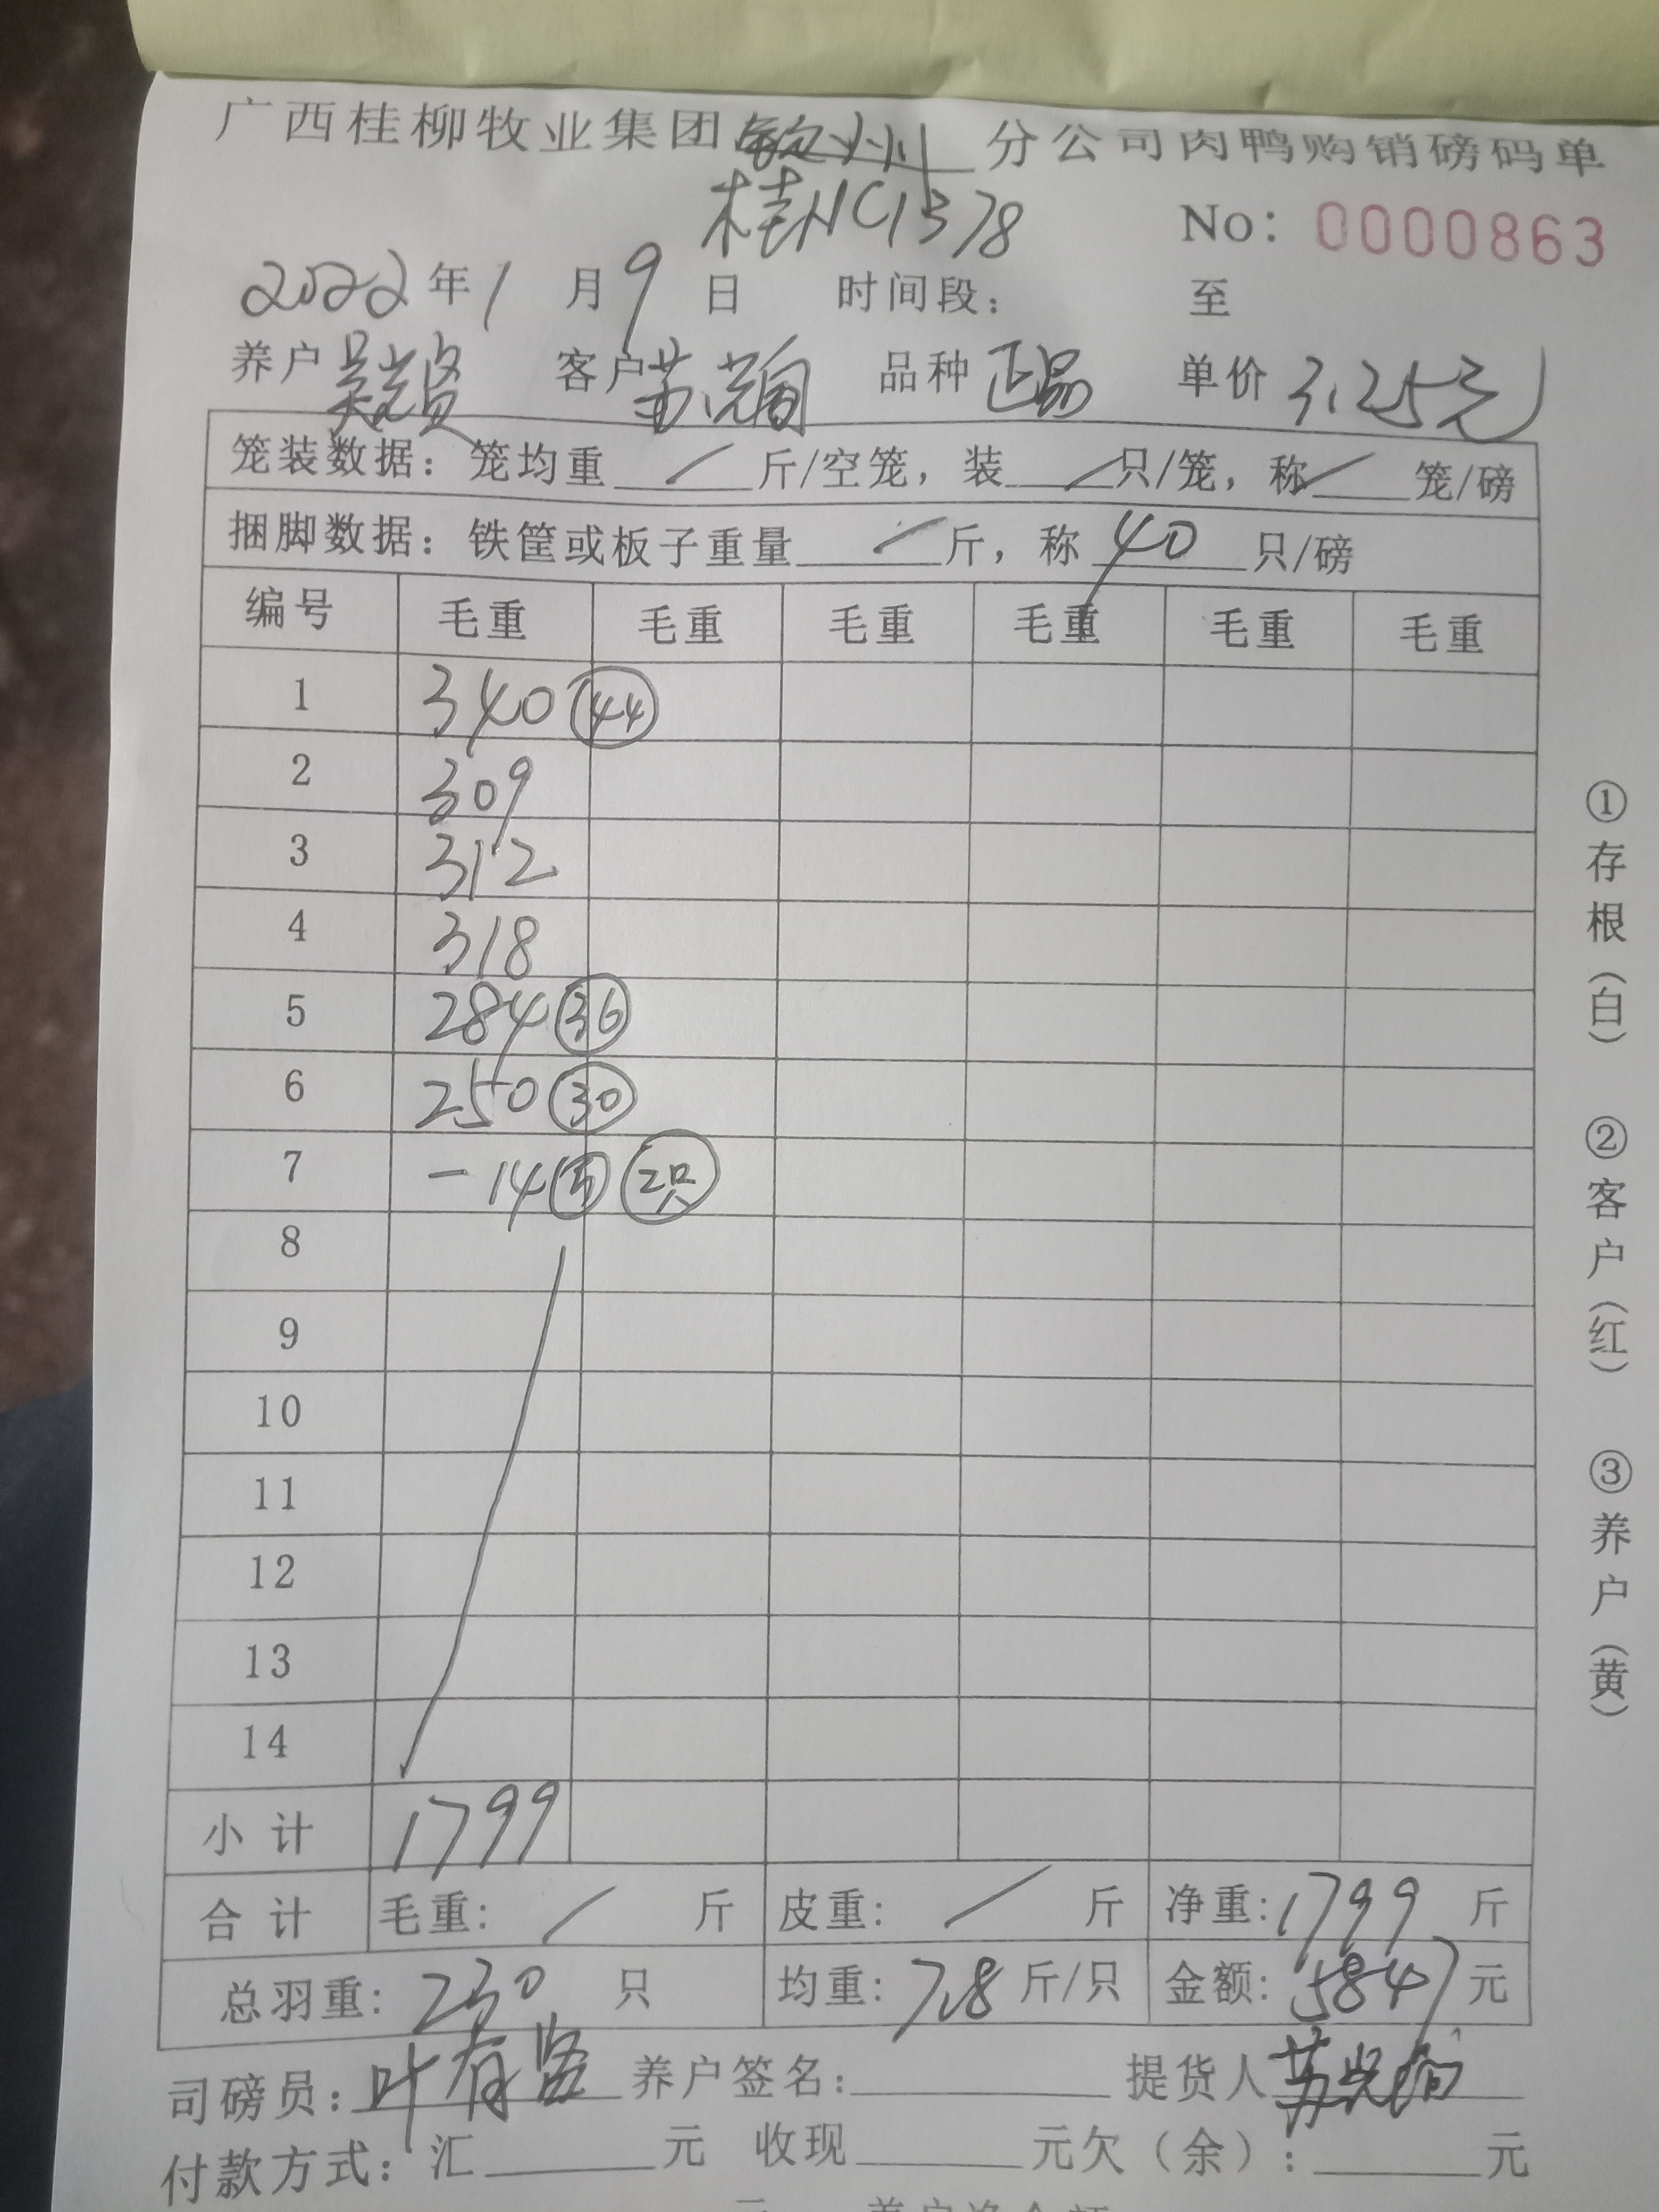 广西桂柳牧业集团钦州分公司肉鸭购销磅码单
桂NC1378
No: 0000863
2022年1月9日 时间段: 至
养户 客户 苏 品种 正品 单价 3.25元
笼装数据: 笼均重 / 斤/空笼, 装 / 只/笼, 称 / 笼/磅
捆脚数据: 铁筐或板子重量 / 斤, 称 40 只/磅
编号 毛重 毛重 毛重 毛重 毛重 毛重
1 340 44
2 309
3 312
4 318
5 284 36
6 250 30
7 -14 2只
8
9
10
11
12
13
14
小计 1799
合计 毛重: / 斤 皮重: / 斤 净重: 1799 斤
总羽重: 230 只 均重: 7.8 斤/只 金额: 5847 元
司磅员: 叶有 养户签名: 提货人 苏
付款方式: 汇 元 收现 元欠(余): 元
①存根(白) ②客户(红) ③养户(黄)